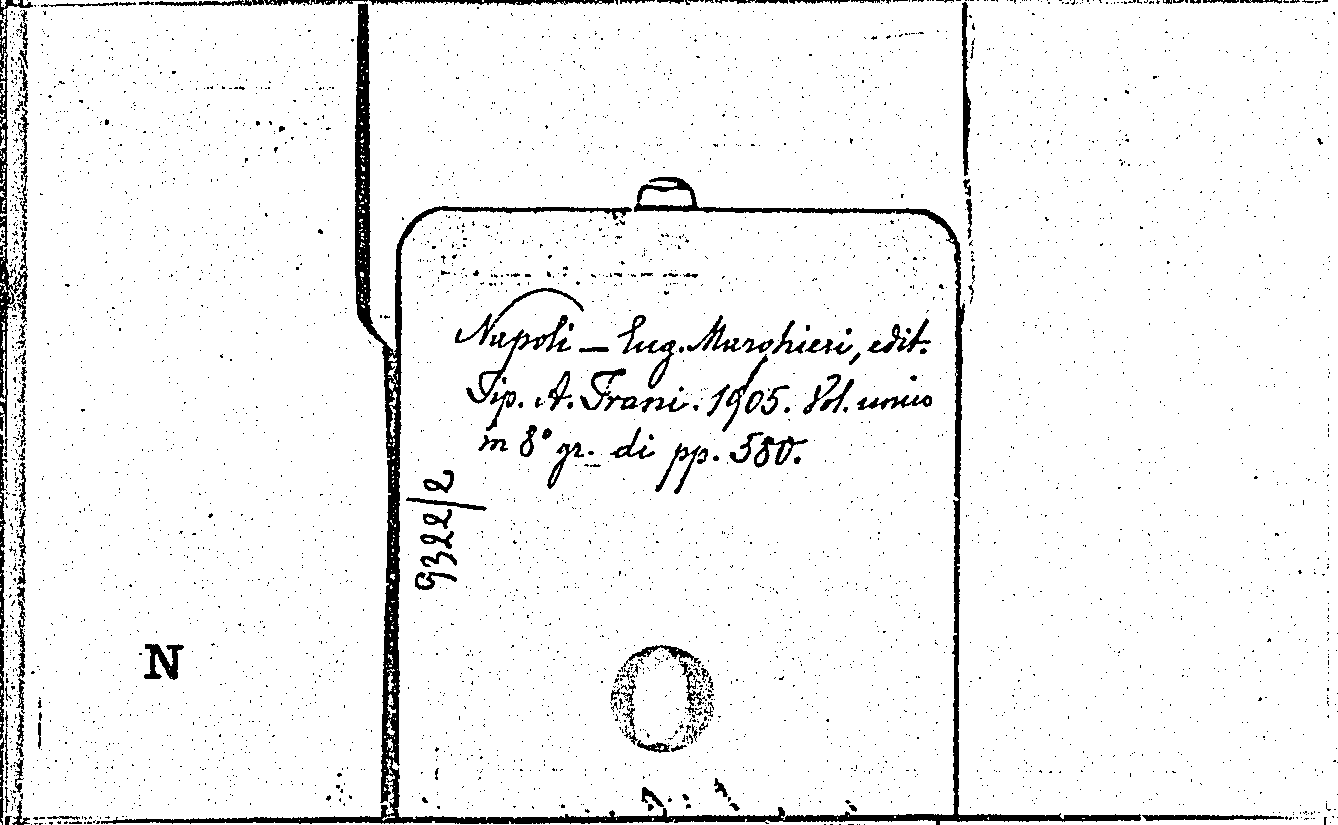 Napoli — Eug. Marghieri, edit.
Tip. A. Trani. 1905. Vol. unico
in 8° gr. di pp. 580.
9322/2
N